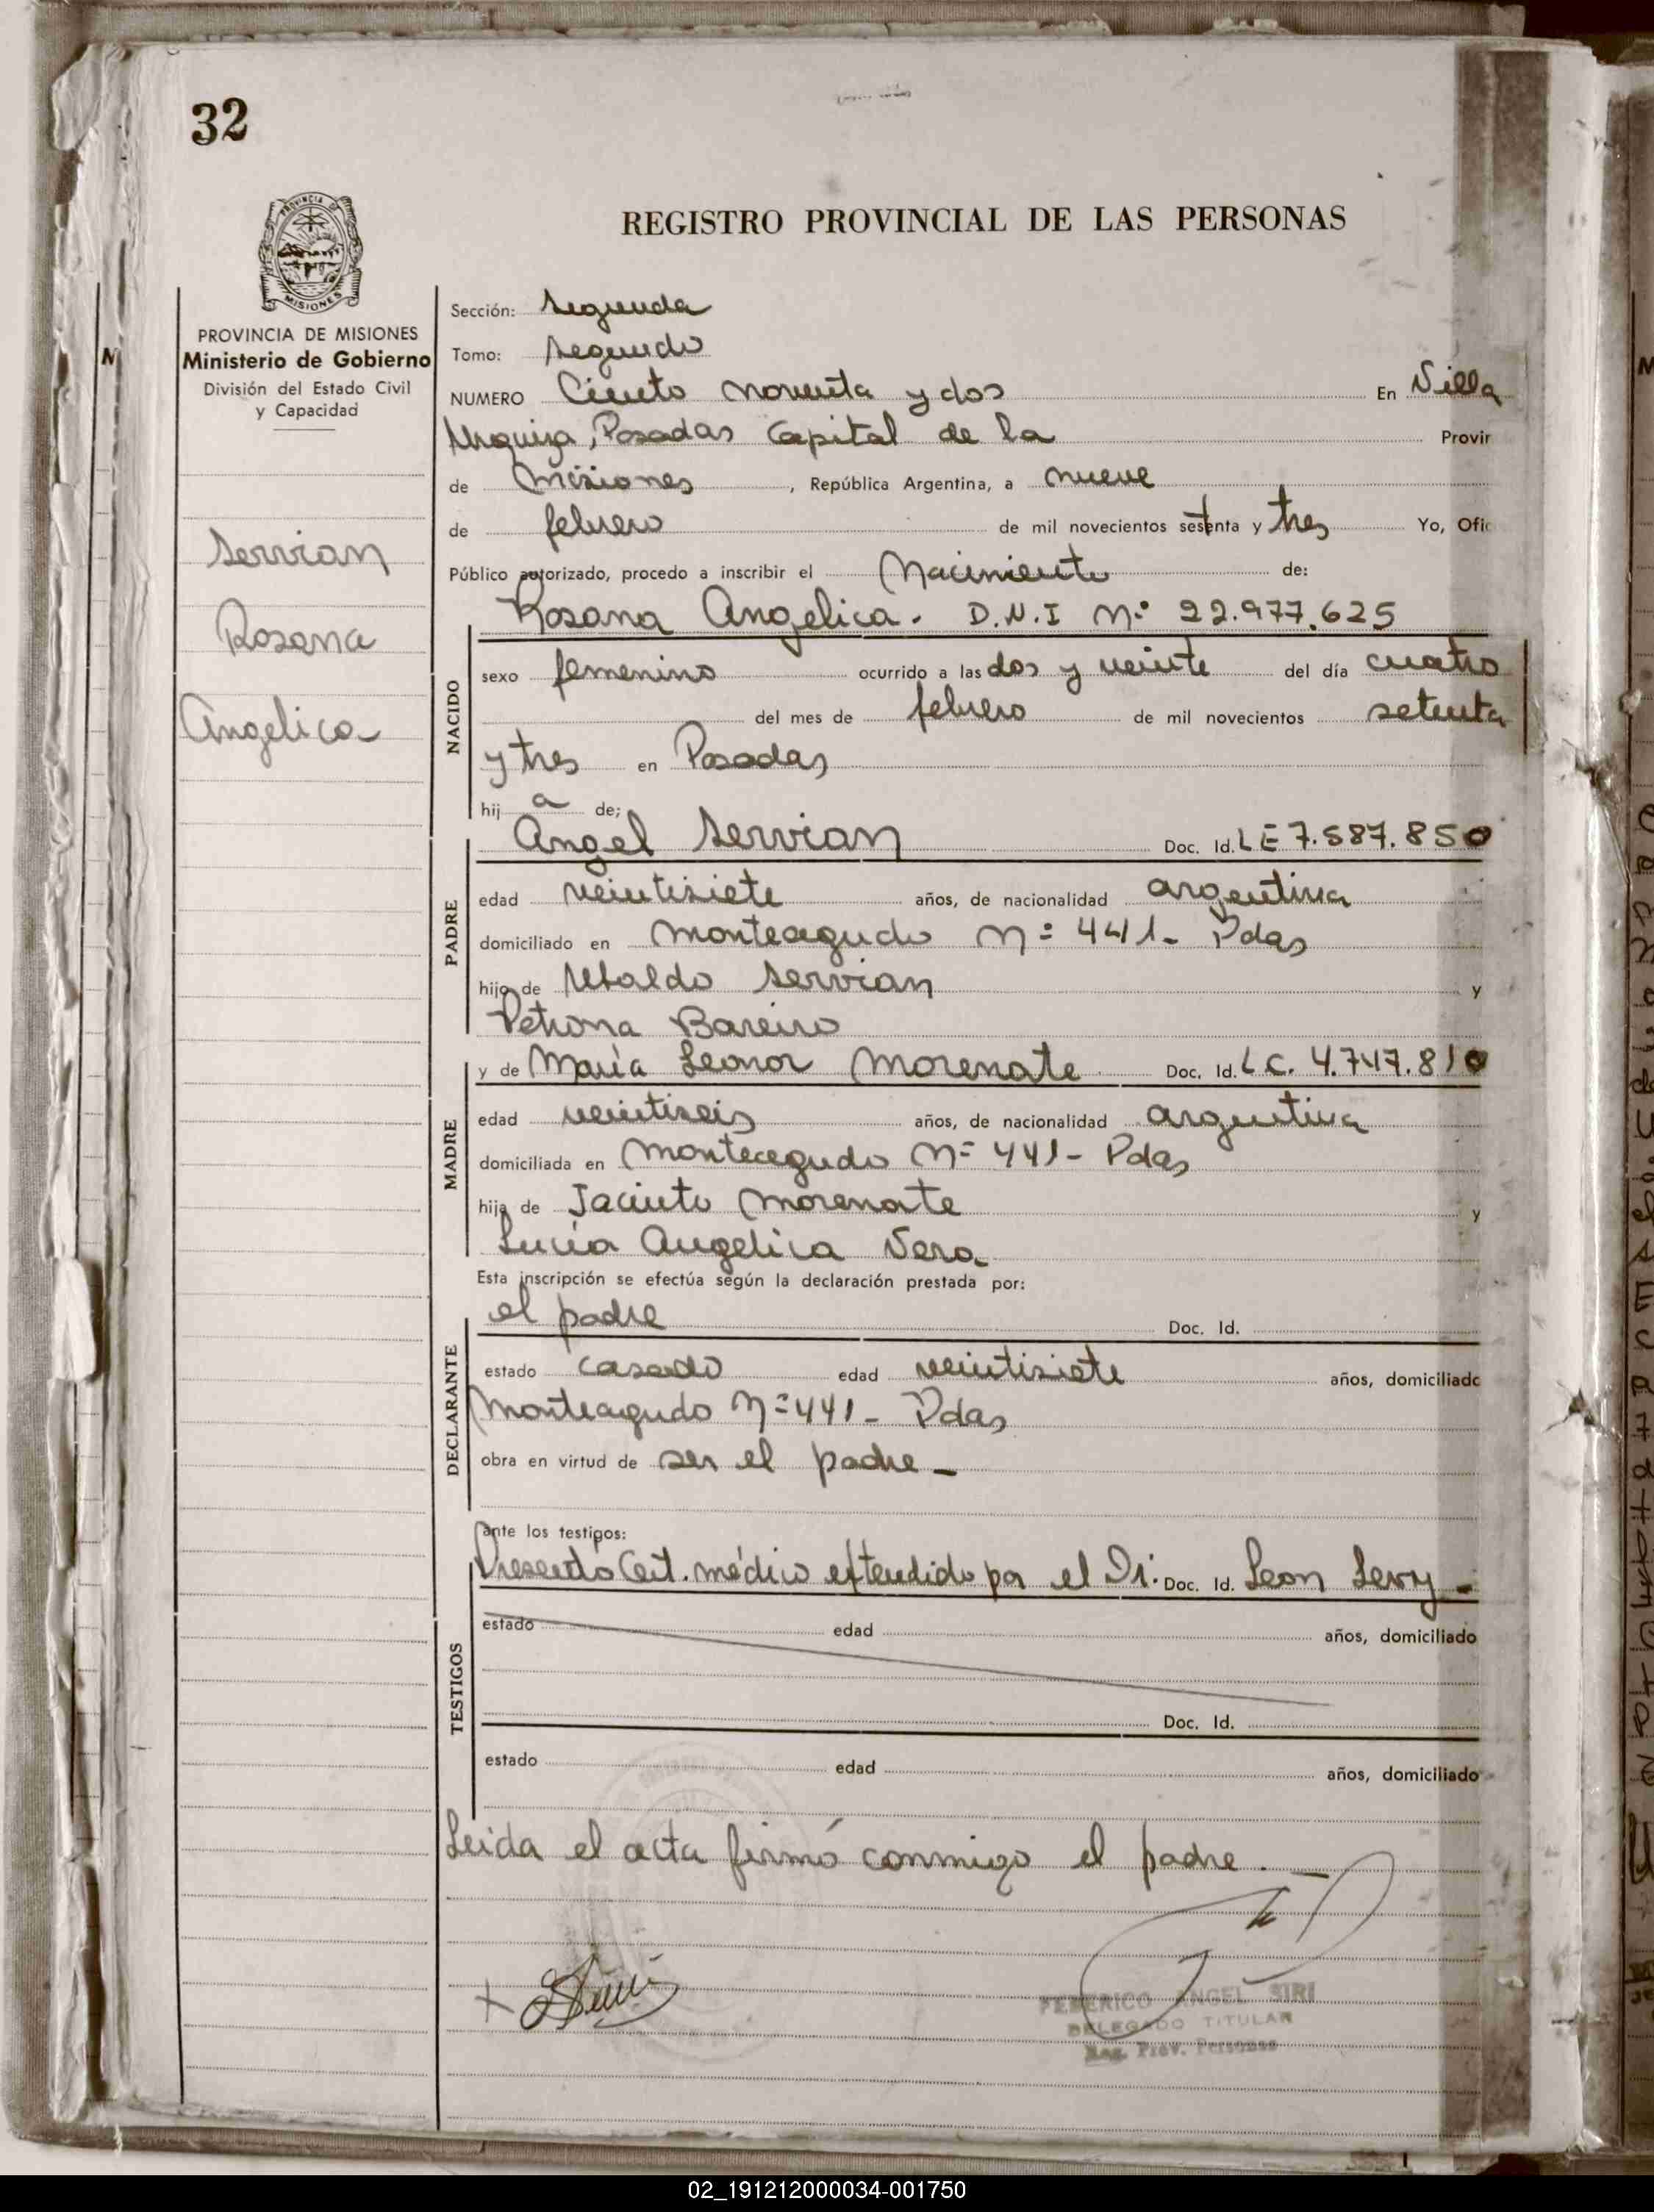 32
REGISTRO PROVINCIAL DE LAS PERSONAS
PROVINCIA DE
MISIONES
PROVINCIA DE MISIONES
Ministerio de Gobierno
División del Estado Civil
y Capacidad
Servian
Rosana
Angelica
Sección: Segunda
Tomo: Segundo
NUMERO Ciento noventa y dos En Villa
Urquiza, Posadas Capital de la Provin
de Misiones, República Argentina, a nueve
de febrero de mil novecientos setenta y tres Yo, Ofic
Público autorizado, procedo a inscribir el Nacimiento de:
Rosana Angelica. D.N.I Nº 22.977.625
NACIDO
sexo femenino ocurrido a las dos y veinte del día cuatro
del mes de febrero de mil novecientos setenta
y tres en Posadas
hij a de;
Angel Servian Doc. Id. LE 7.587.850
PADRE
edad veintisiete años, de nacionalidad argentina
domiciliado en Monteagudo Nº 441- Pdas
hijo de Ubaldo Servian y
Petrona Bareiro
y de María Leonor Morenate Doc. Id. LC. 4.747.810
MADRE
edad veintiseis años, de nacionalidad argentina
domiciliada en Monteagudo Nº 441- Pdas
hija de Jacinto Morenate y
Lucía Angelica Vera
Esta inscripción se efectúa según la declaración prestada por:
el padre Doc. Id.
DECLARANTE
estado casado edad veintisiete años, domiciliado
Monteagudo Nº 441- Pdas
obra en virtud de ser el padre-
ante los testigos:
Presentó Cert. médico extendido por el Dr. Doc. Id. Leon Levy-
TESTIGOS
estado edad años, domiciliado
Doc. Id.
estado edad años, domiciliado
Leida el acta firmó conmigo el padre.-
FEDERICO ANGEL SIRI
DELEGADO TITULAR
Reg. Prov. Personas
02_191212000034-001750